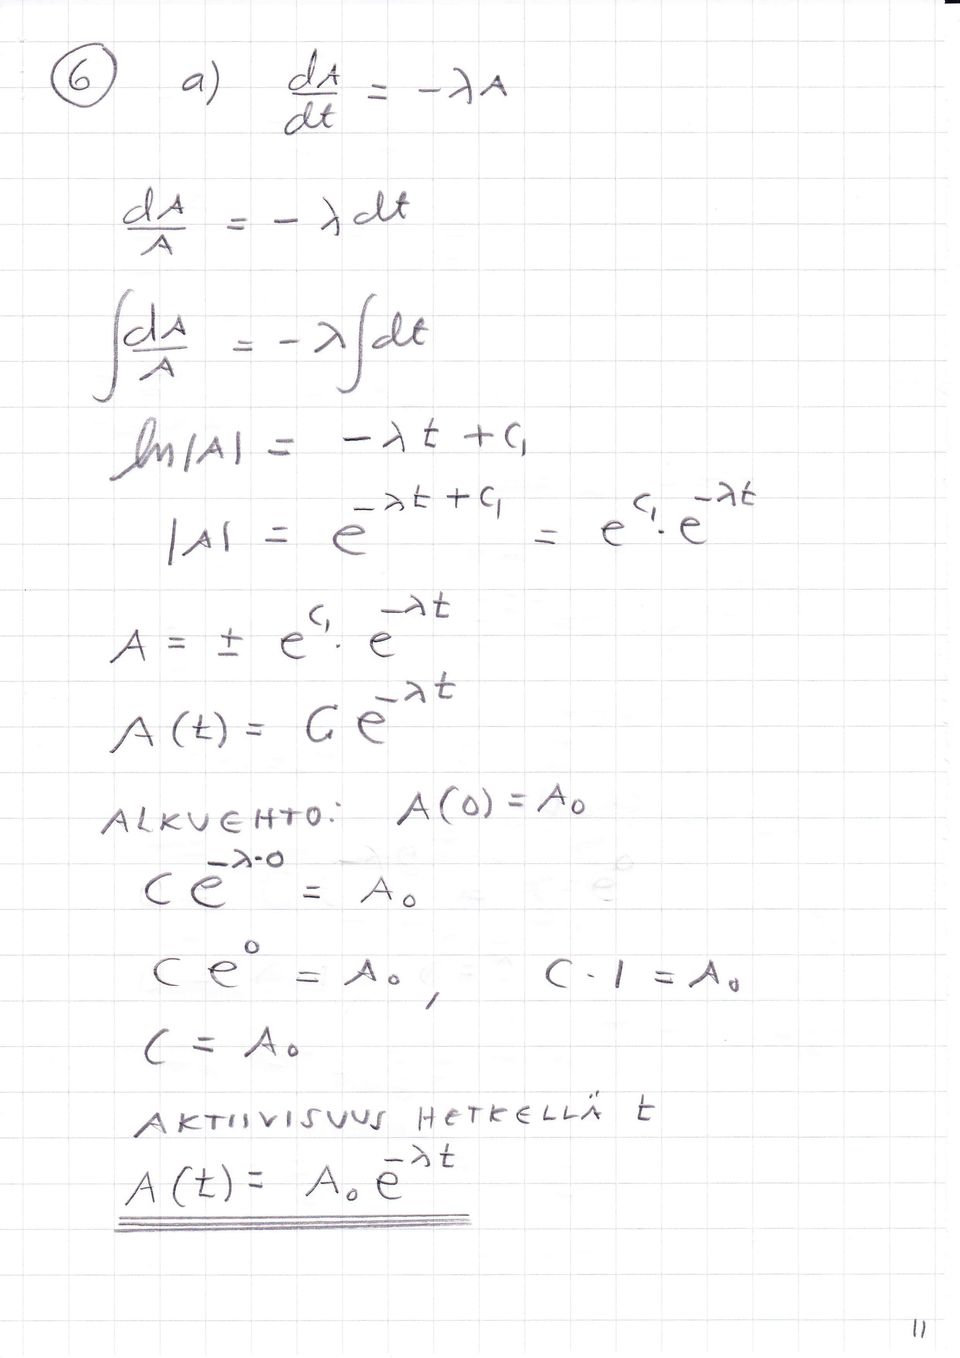 ⑥ a) dA/dt = -λA
dA/A = -λ dt
∫dA/A = -λ∫dt
ln|A| = -λt + C₁
|A| = e^(-λt + C₁) = e^(C₁) · e^(-λt)
A = ± e^(C₁) · e^(-λt)
A(t) = C e^(-λt)
ALKUEHTO: A(0) = A₀
C e^(-λ·0) = A₀
C e^0 = A₀, C · 1 = A₀
C = A₀
AKTIIVISUUS HETKELLÄ t
A(t) = A₀ e^(-λt)
11